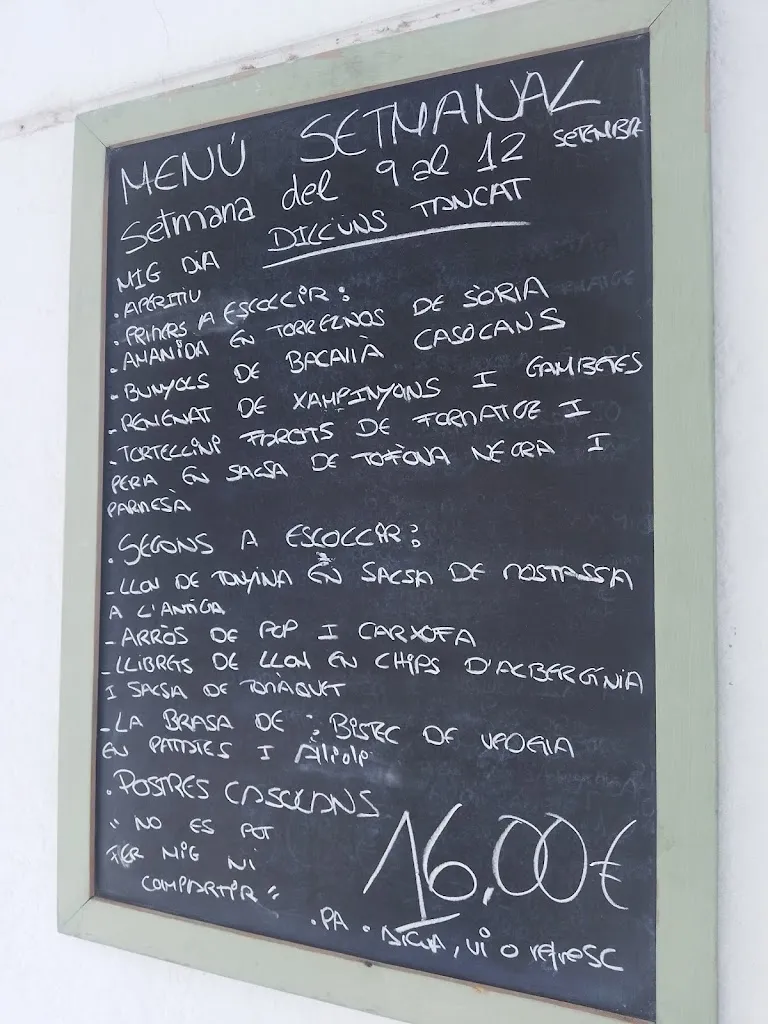 MENÚ SETMANAL
Setmana del 9 al 12 SETEMBRE
DILLUNS TANCAT
MIG DIA
. APERITIU
. PRIMERS A ESCOLLIR:
- AMANIDA EN TORREZNOS DE SÒRIA
- BUNYOLS DE BACALLÀ CASOLANS
- REMENAT DE XAMPINYONS I GAMBETES
- TORTELLINI FARCITS DE FORMATGE I
PERA EN SALSA DE TOFONA NEGRA I
PARMESÀ
. SEGONS A ESCOLLIR:
- LLOM DE TONYINA EN SALSA DE MOSTASSA
A L'ANTIGA
- ARRÒS DE POP I CARXOFA
- LLIBRETS DE LLOM EN CHIPS D'ALBERGÍNIA
I SALSA DE TOMÀQUET
- LA BRASA DE : BISTEC DE VEDELLA
EN PATATES I Allioli
. POSTRES CASOLANS
" NO ES POT
FER MIG NI
COMPARTIR "
16,00€
. PA . AIGUA, VI O refresc